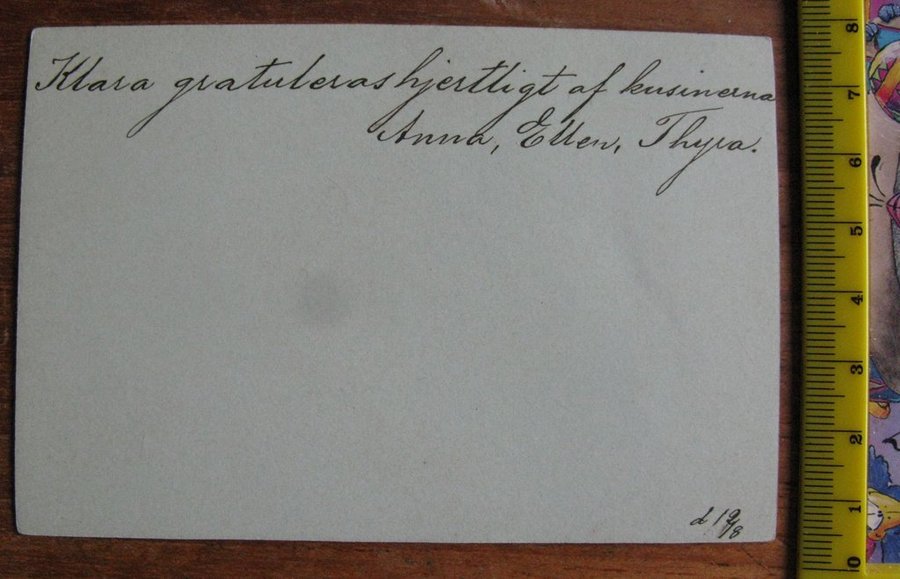 Klara gratuleras hjertligt af kusinerna
Anna, Ellen, Thyra.
d 19/8
8
7
6
5
4
3
2
1
0